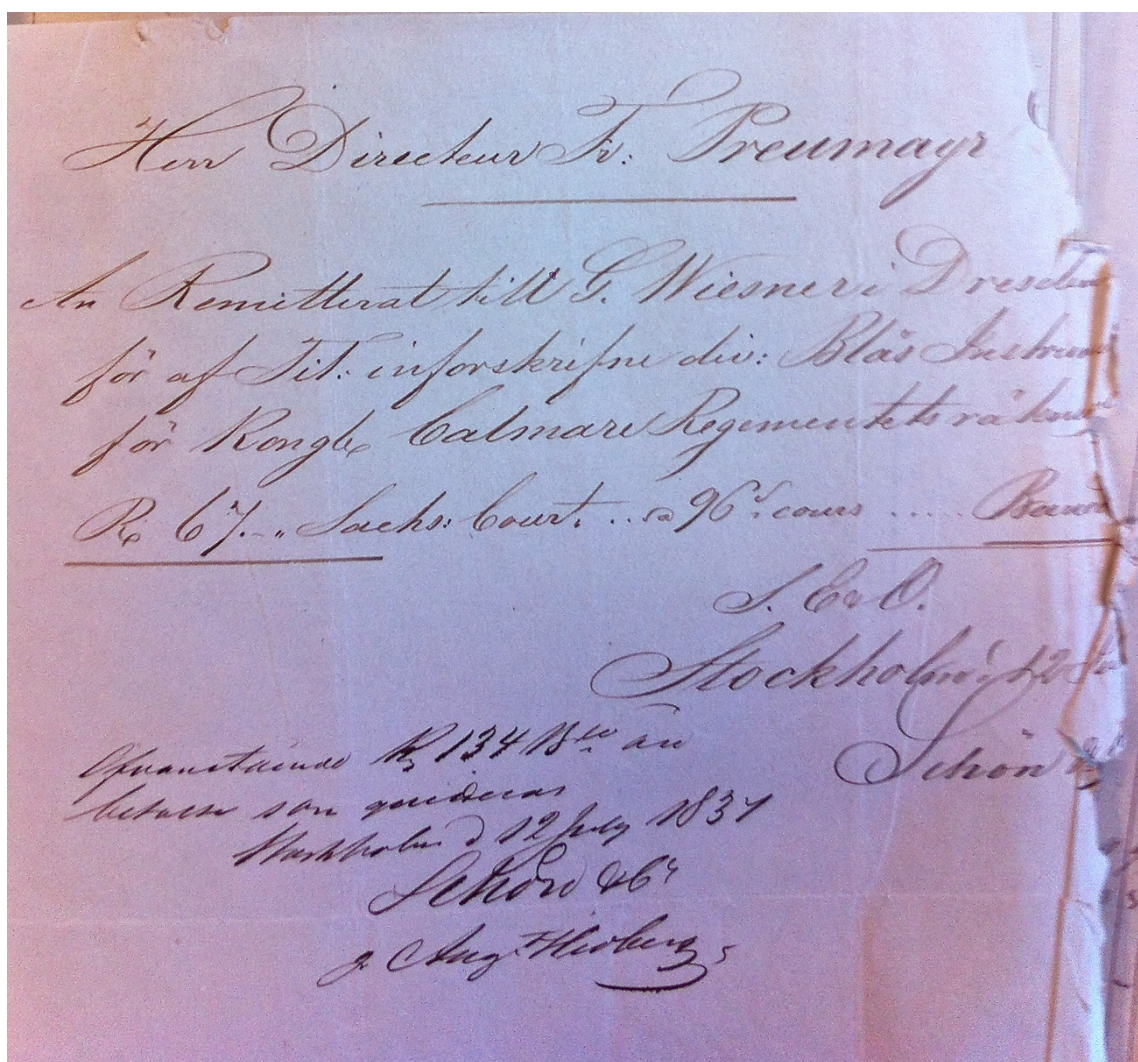 Herr Directeur Fr: Preumayr
An Remitterat till G. Wiesner i Dresden
för af Tit: inforskrifne div: Blås Instrum
för Kongl. Calmare Regementets räkning
R 67.-„ Sachs: Court. .. a 96 s cours ..... Banco
S. E & O.
Stockholm d 12
Schön & C
Ofvanstående R 134 Bco än
betalte som qvitteras
Stockholm d 12 July 1837
Schön & Co
Aug